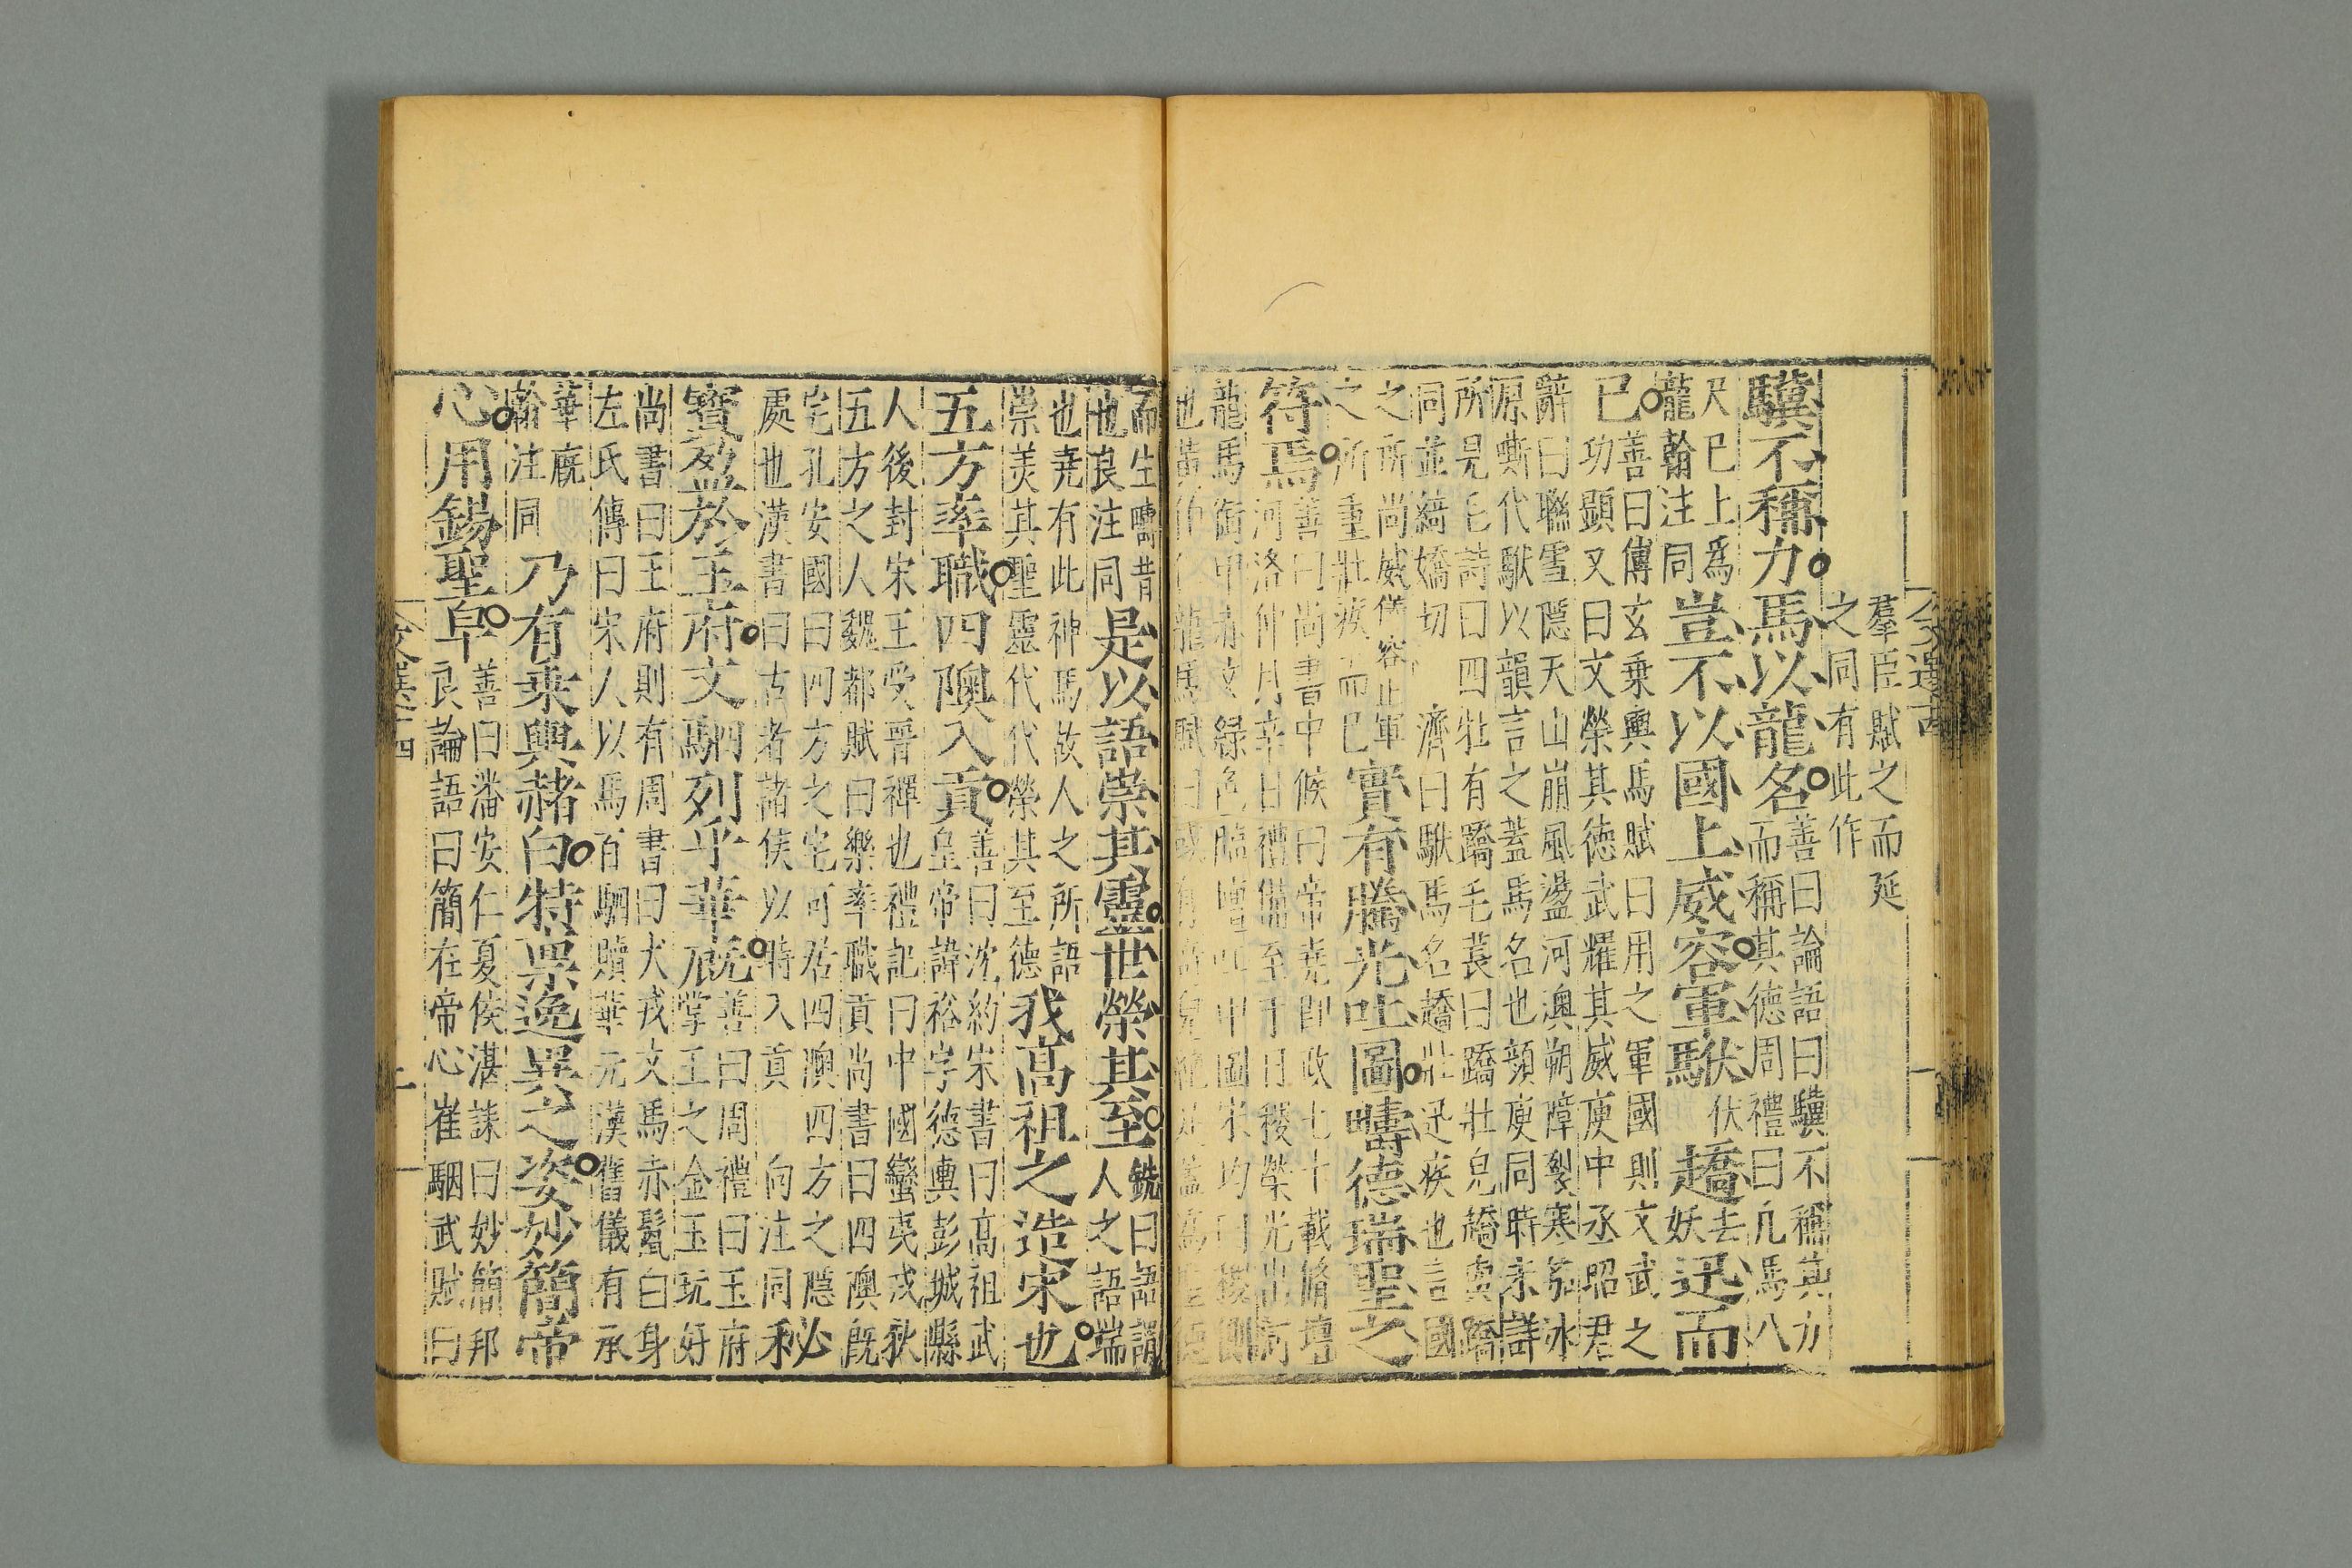 羣臣賦之而延
之同有此作
驥不稱力馬以龍名善曰論語曰驥不稱其力
而稱其德周禮曰凡馬八
尺已上爲
龍翰注同豈不以國上威容軍駥伏趫去妖迅而
已善曰傅玄乗輿馬賦曰用之軍國則文武之
功顯又曰文榮其德武耀其威庾中丞昭君
辭曰聯雪隱天山崩風盪河澳朔障裂寒笳冰
原嘶代駥以韻言之蓋馬名也顏庾同時未詳
所見毛詩曰四牡有蹻毛萇曰蹻壯皃繑與蹻
同並綺嬌切 濟曰駥馬名趫壯迅疾也言國
之所尚威儀容止軍
之所重壯疾而已實有騰光吐圖疇德瑞聖之
符焉善曰尚書中候曰帝堯即政七十載脩壇
河洛仲月辛日禮備至于日稷榮光出河
龍馬銜甲赤文綠色臨壇吐甲圖宋均曰稷側
也黃伯仁龍馬賦曰或有奇皃絕足蓋爲聖德
而生疇昔
也良注同是以語崇其靈世榮其至銑曰語謂
人之語端
也堯有此神馬故人之所語
崇美其聖靈代代榮其至德我高祖之造宋也
五方率職四隩入貢善曰沈約宋書曰高祖武
皇帝諱裕字德輿彭城縣
人後封宋王受晉禪也禮記曰中國蠻夷戎狄
五方之人魏都賦曰樂率職貢尚書曰四隩旣
宅孔安國曰四方之宅可居四隩四方之隱
處也漢書曰古者諸侯以時入貢 向注同秘
寶盈於玉府文駟列乎華廐善曰周禮曰玉府
掌王之金玉玩好
尚書曰王府則有周書曰犬戎文馬赤鬣白身
左氏傳曰宋人以馬百駟贖華元漢舊儀有承
華廐
翰注同乃有乗輿赭白特稟逸異之姿妙簡帝
心用錫聖皁善曰潘安仁夏侯湛誄曰妙簡邦
良論語曰簡在帝心崔駰武賦曰